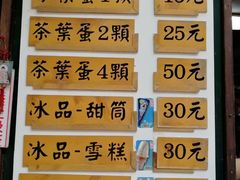 茶葉蛋2顆 25元
茶葉蛋4顆 50元
冰品-甜筒 30元
冰品-雪糕 30元